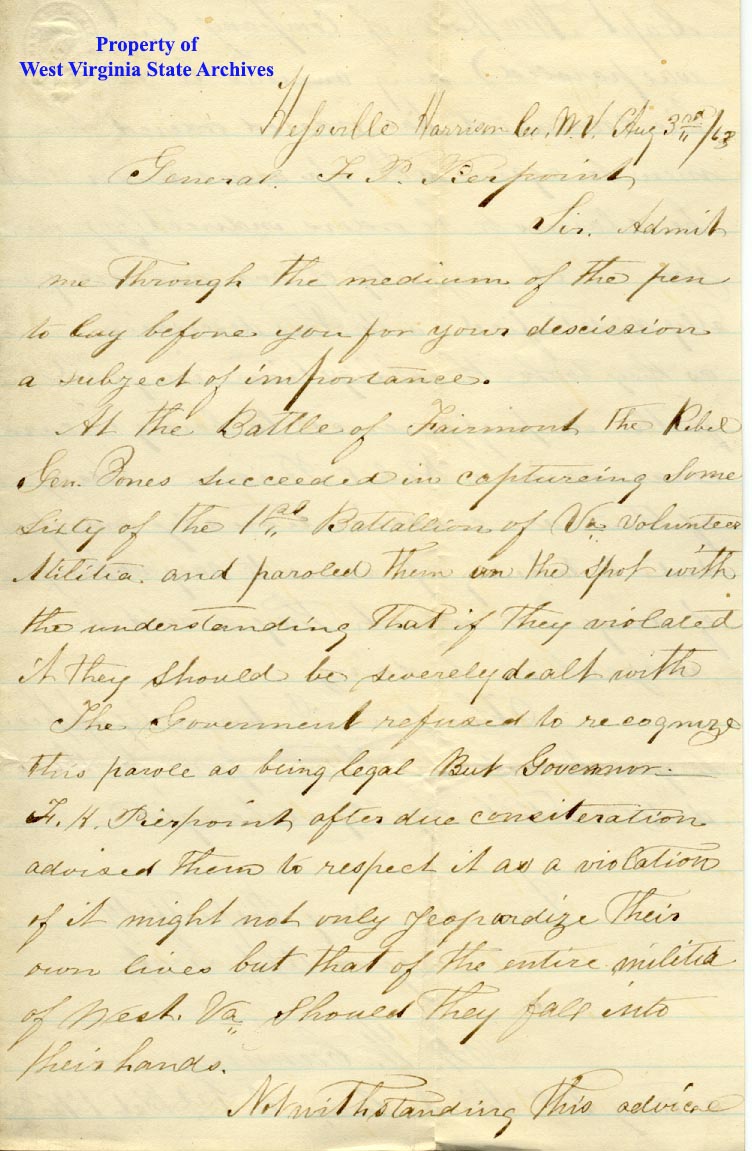 Property of
West Virginia State Archives
Hessville Harrison Co. W.V. Aug 3rd/63
General. F. P. Pierpoint
Sir. Admit
me through the medium of the pen
to lay before you for your descission
a subject of importance.
At the Battle of Fairmont the Rebel
Gen. Jones succeeded in captureing some
sixty of the 1st Battallion of Va Volunteer
Militia. and paroled them on the spot with
the understanding that if they violated
it they should be severely dealt with
The Goverment refused to recognize
this parole as being legal But Governor.
F. H. Pierpoint after due consiteration
advised them to respect it as a violation
of it might not only jeopardize their
own lives but that of the entire militia
of West. Va should they fall into
their hands.
Notwithstanding this advice